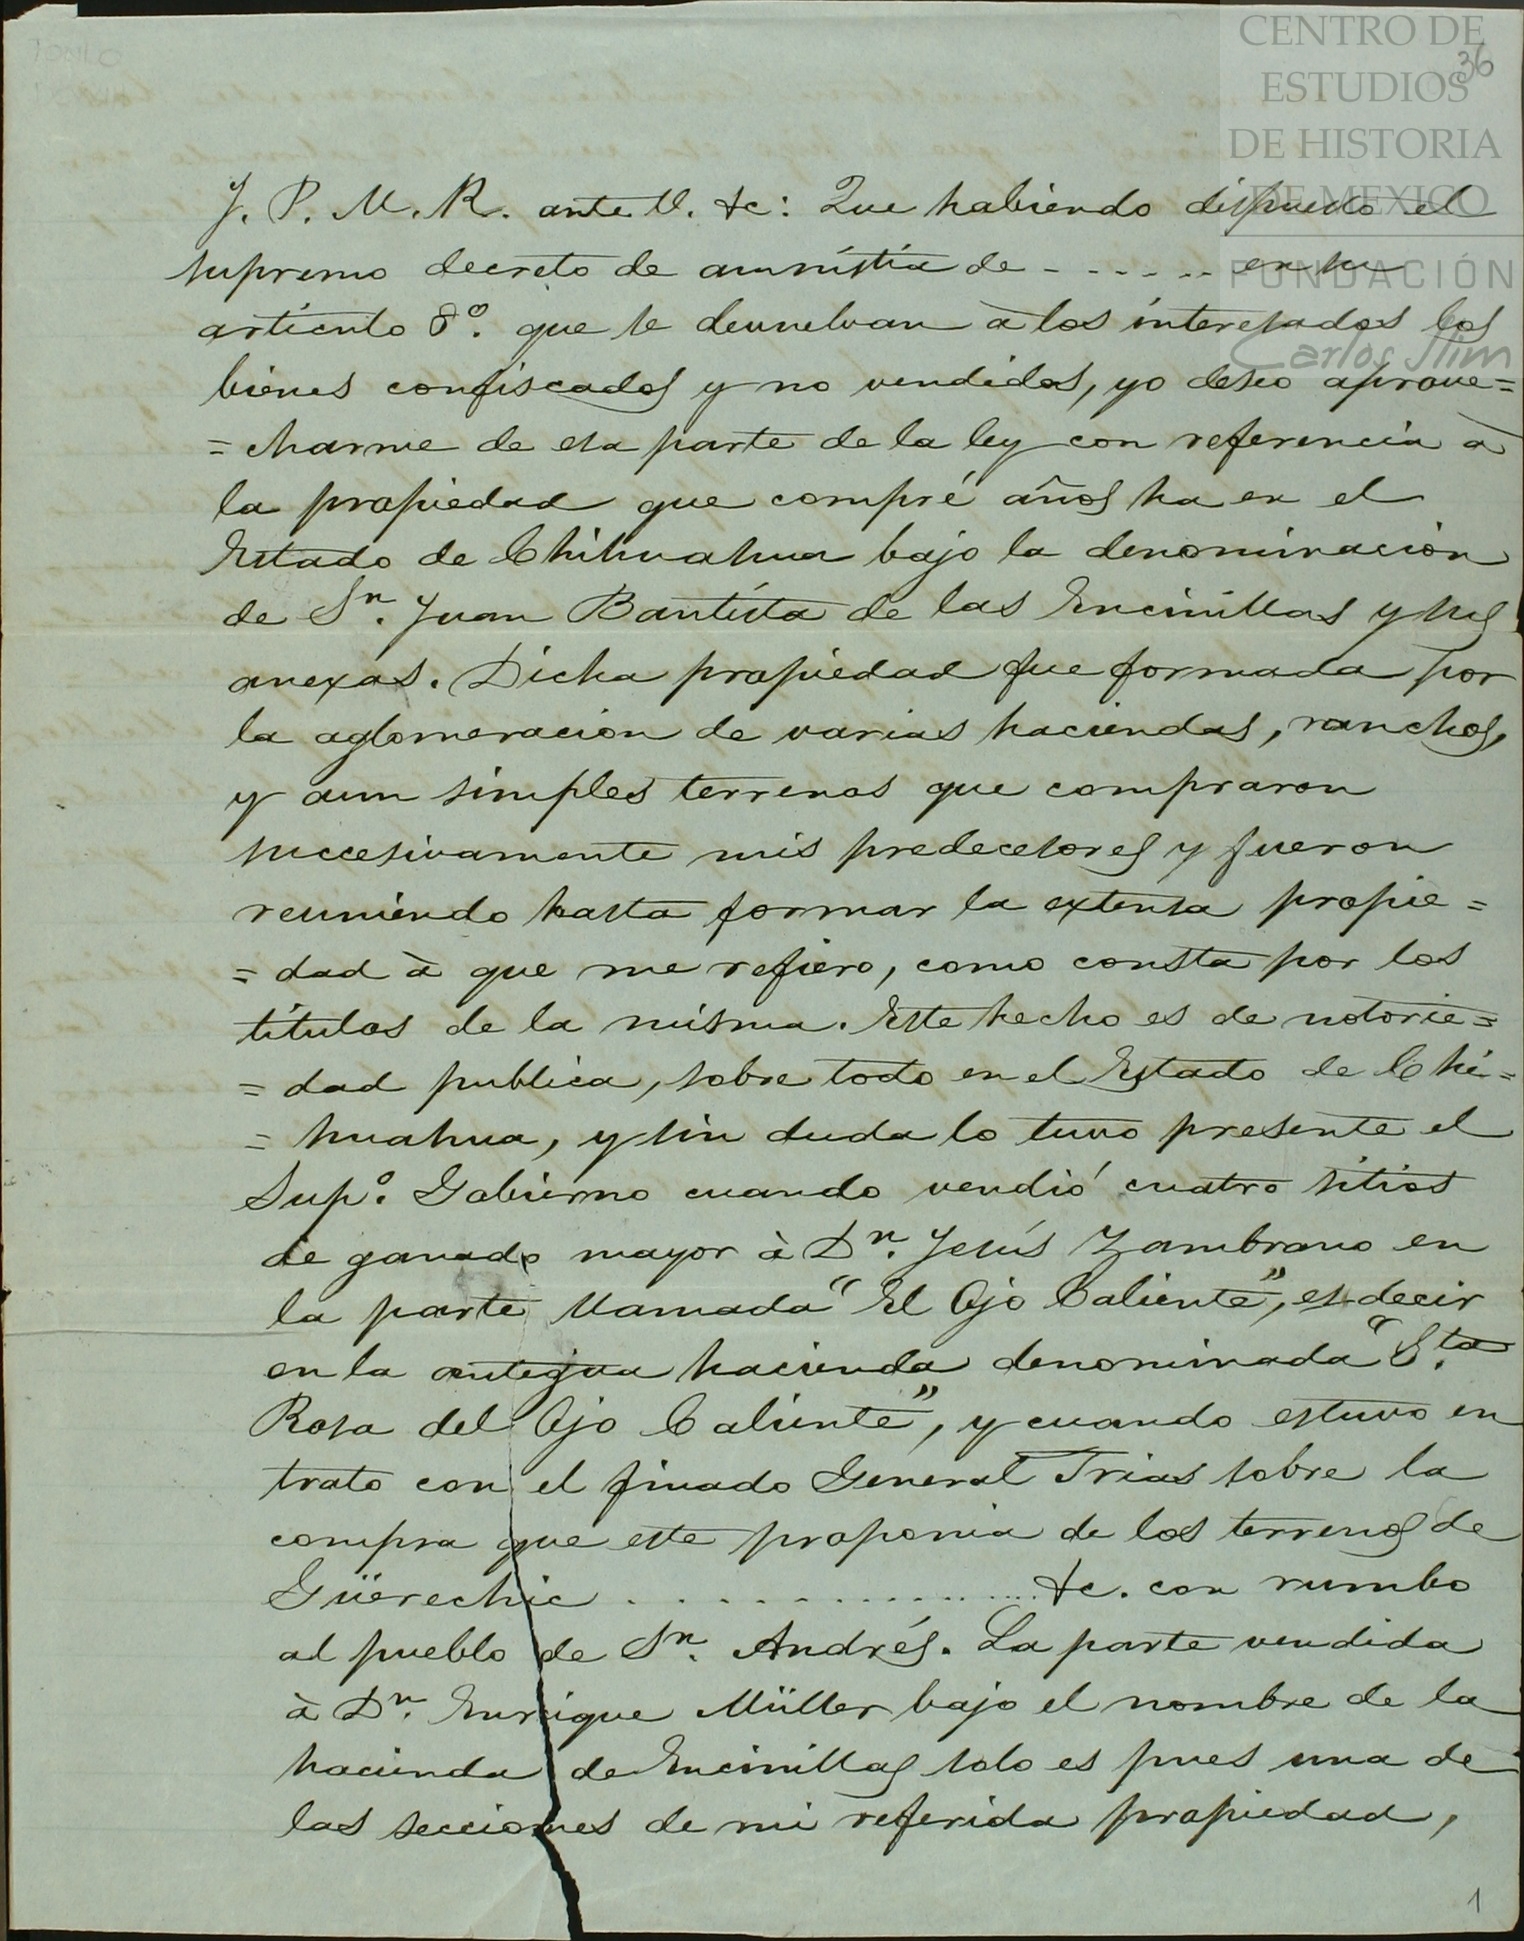 CENTRO DE
ESTUDIOS
DE HISTORIA
DE MEXICO
FUNDACIÓN
Carlos Slim
36
J. P. M. R. ante V. &c: Que habiendo dispuesto el
supremo decreto de amnistia de - - - - - - en su
artículo 8º. que se devuelvan à los interesados los
bienes confiscados y no vendidos, yo deseo aprove=
=charme de esa parte de la ley con referencia à
la propiedad que compré años ha en el
Estado de Chihuahua bajo la denominacion
de Sn. Juan Bautista de las Encinillas y sus
anexas. Dicha propiedad fue formada por
la aglomeracion de varias haciendas, ranchos,
y aun simples terrenos que compraron
succesivamente mis predecesores y fueron
reuniendo hasta formar la extensa propie=
=dad à que me refiero, como consta por los
títulos de la misma. Este hecho es de notorie=
=dad publica, sobre todo en el Estado de Chi=
=huahua, y sin duda lo tuvo presente el
Supº. Gobierno cuando vendió cuatro sitios
de ganado mayor à Dn. Jesús Zambrano en
la parte llamada "El Ojo Caliente", es decir
en la antigua hacienda denominada "Sta.
Rosa del Ojo Caliente", y cuando estuvo en
trato con el finado General Trias sobre la
compra que este proponia de los terrenos de
Güerechic . . . . . . . . . . . . . . . &c. con rumbo
al pueblo de Sn. Andrés. La parte vendida
à Dn. Enrique Müller bajo el nombre de la
hacienda de Encinillas solo es pues una de
las secciones de mi referida propiedad,
1